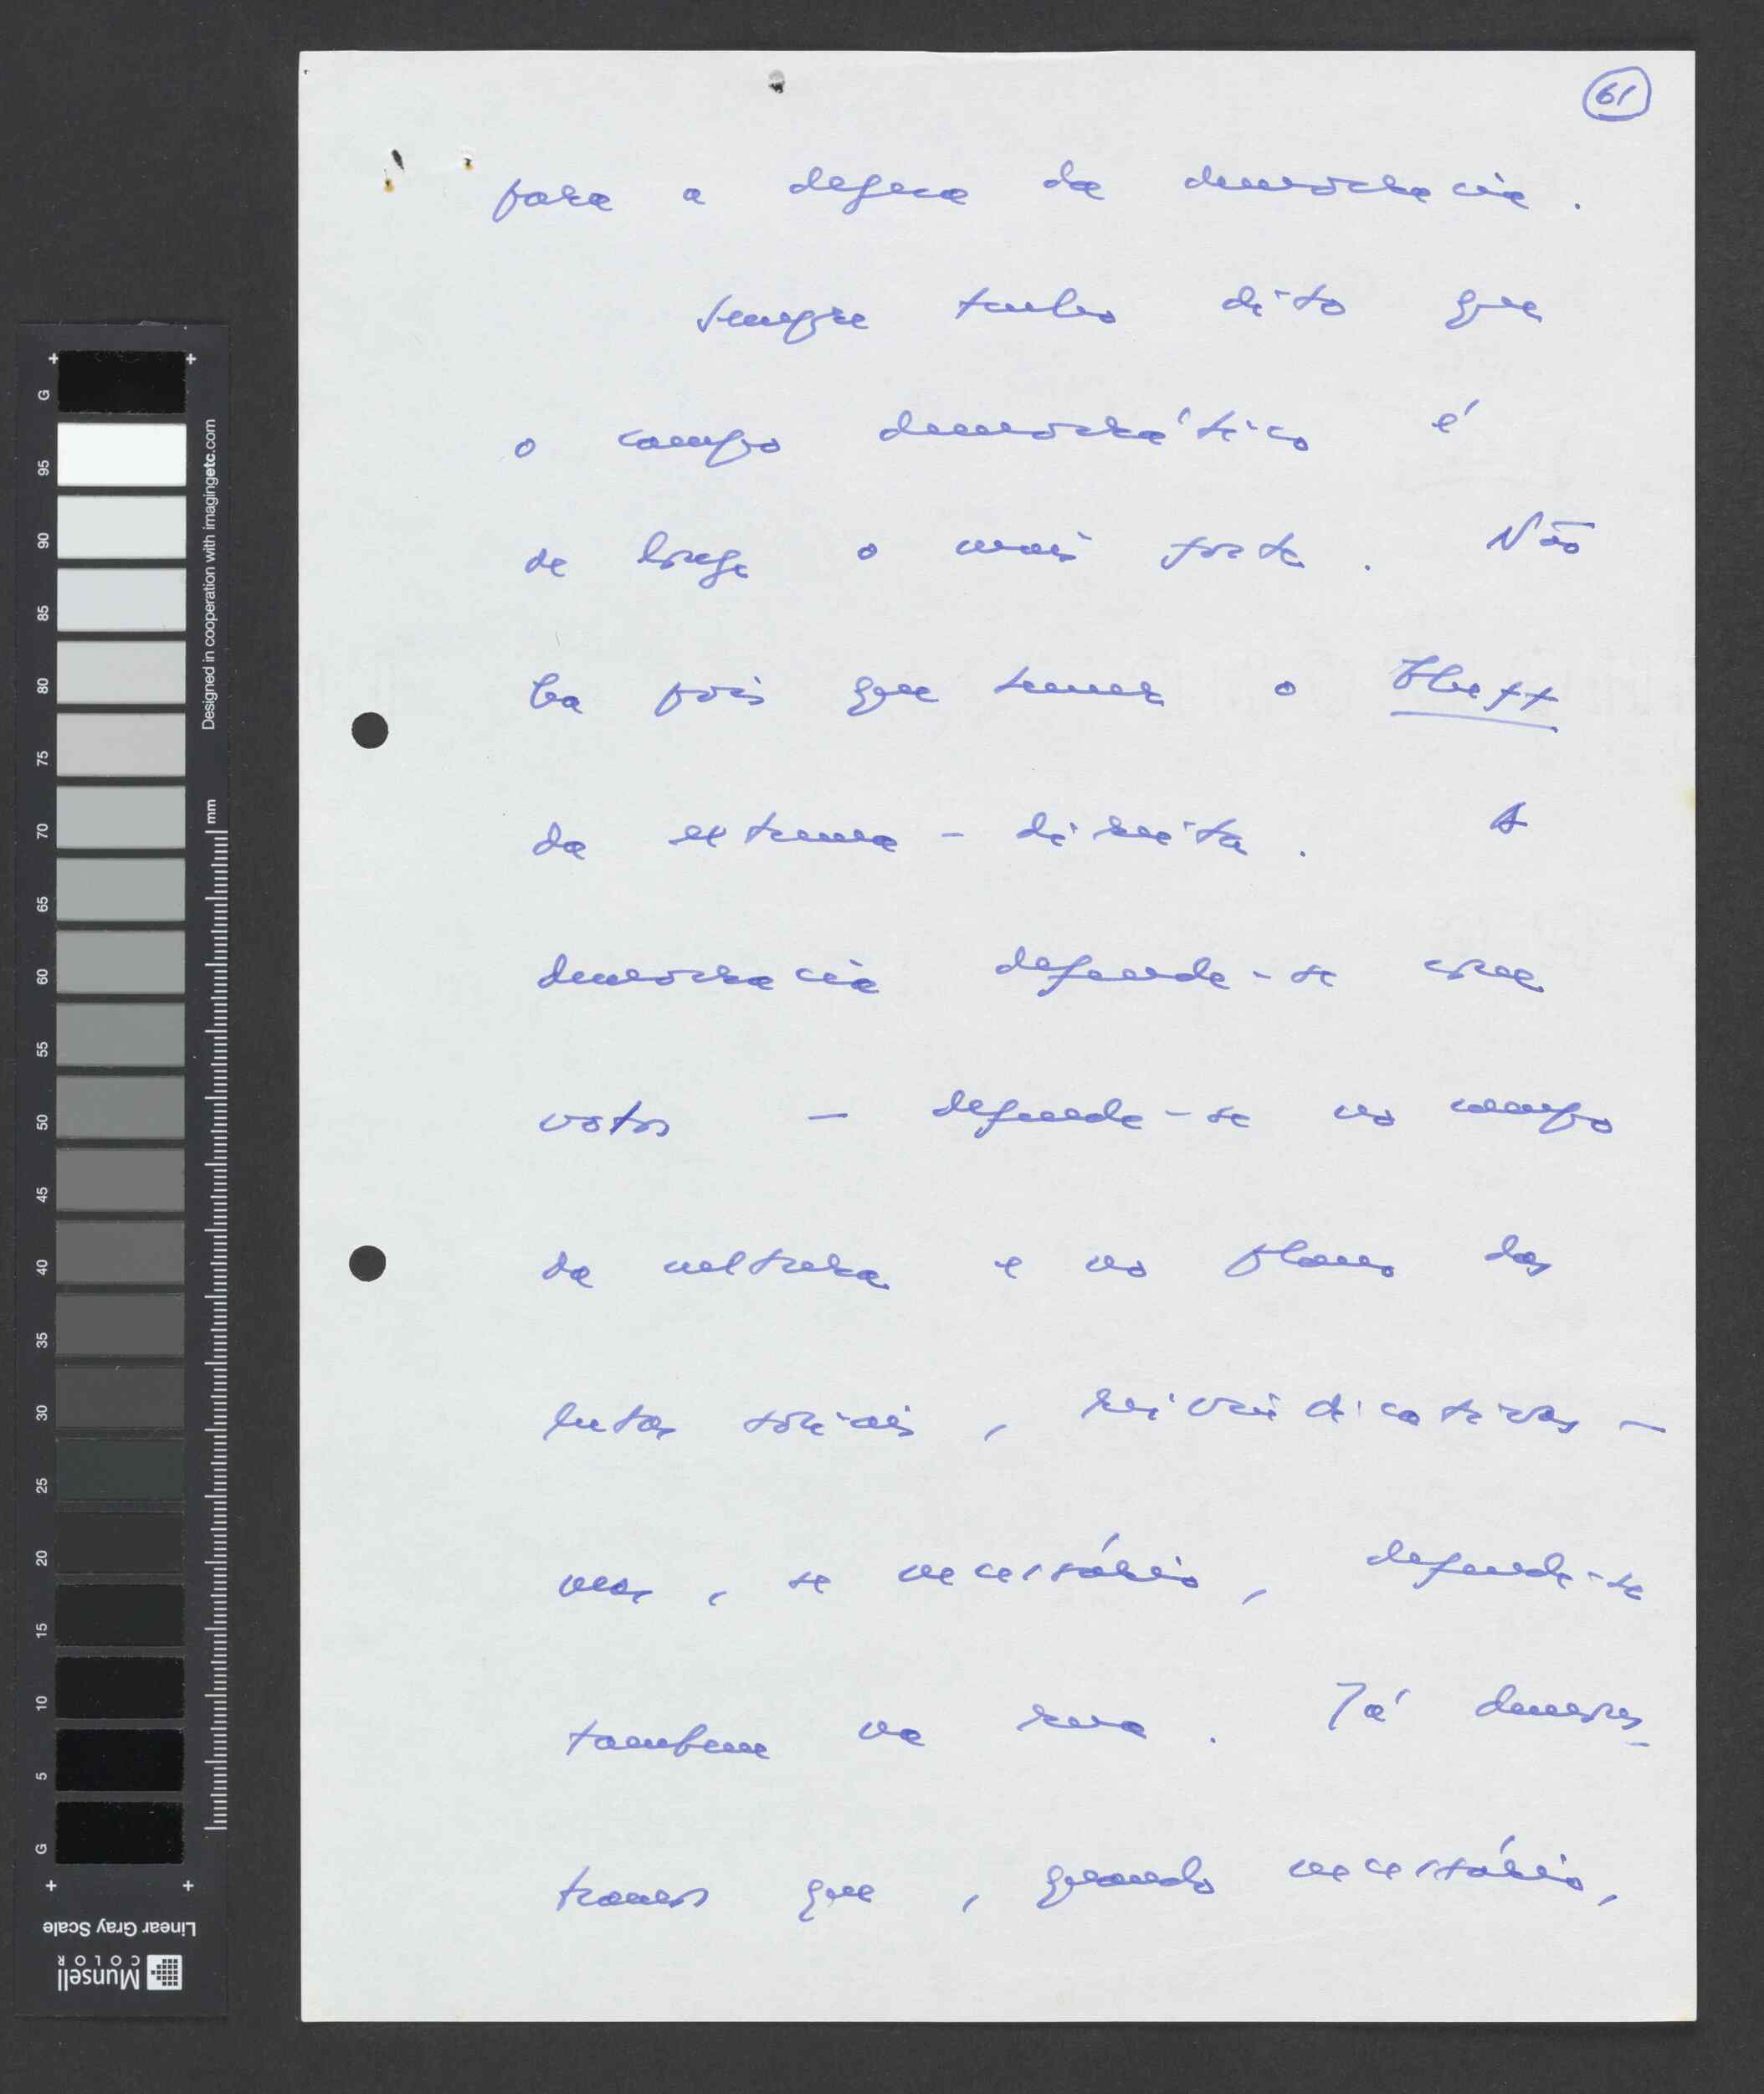 61
para a defesa da democracia.
Sempre tenho dito que
o campo democrático é
de longe o mais forte. Não
ha pois que temer o bluff
da extrema-direita. A
democracia defende-se com
votos — defende-se no campo
da cultura e no plano das
lutas sociais, reivindicativas —
mas, se necessário, defende-se
tambem na rua. Já demons-
tramos que, quando necessário,
G
95
90
85
80
75
70
65
60
55
50
45
40
35
30
25
20
15
10
5
G
Designed in cooperation with imagingetc.com
mm
Linear Gray Scale
Munsell
COLOR